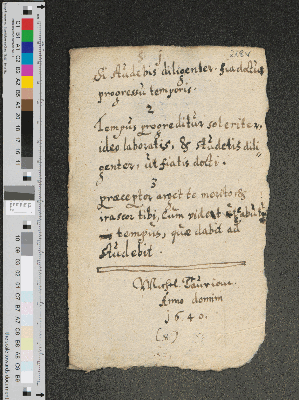 § 1
Si Studebis diligenter. fia doctus
progressu temporis.
2
Tempus progreditur soleriter,
ideo laboratis, & studetis dili
genter, ut fiatis docti.
3
præceptor arget te merito &
irascor tibi, cum videt
tempus, quæ dabit ad
Studebit.
Michl.
Anno domini
1640.